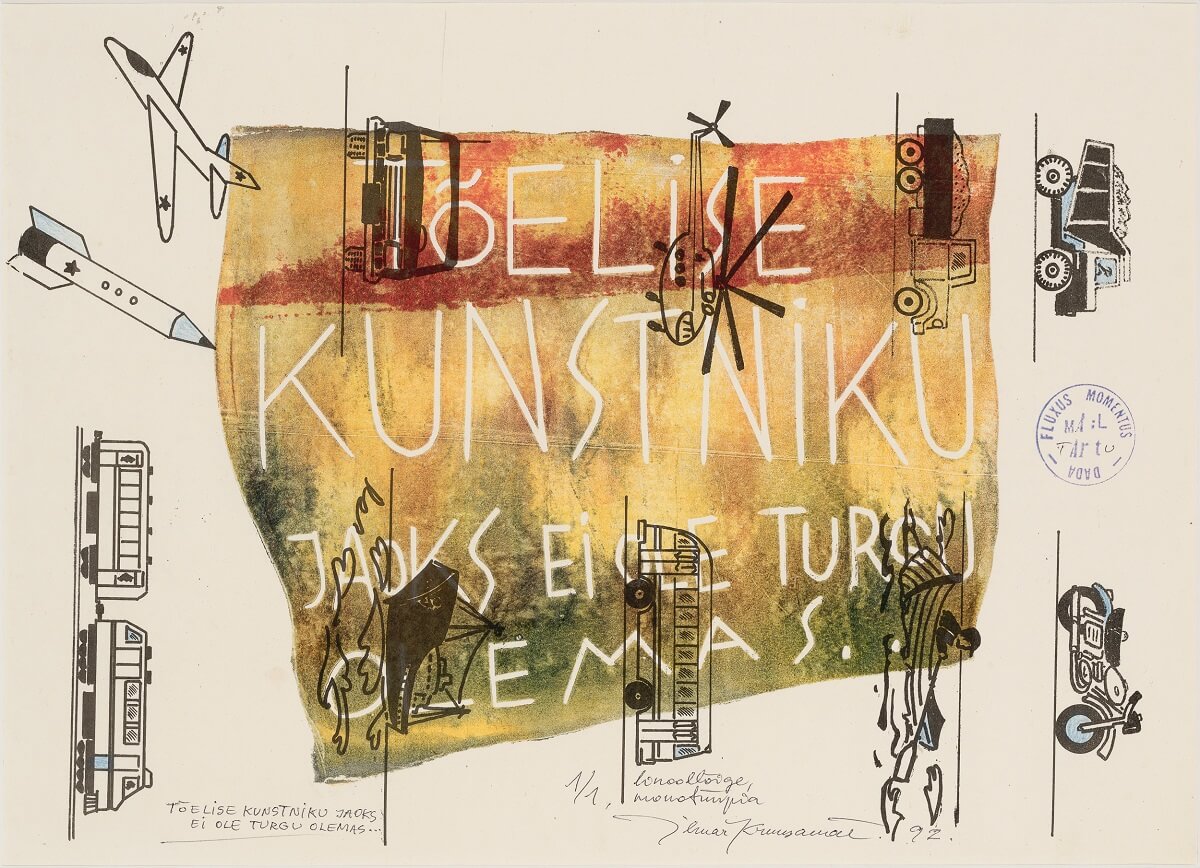 TÕELISE
KUNSTNIKU
JAOKS EI OLE TURGU
OLEMAS...
FLUXUS MOMENTUS
MAIL
TARTU
DADA
TÕELISE KUNSTNIKU JAOKS
EI OLE TURGU OLEMAS...
1/1, linoollõige,
monotüüpia
Ilmar Kruusamäe. 92.